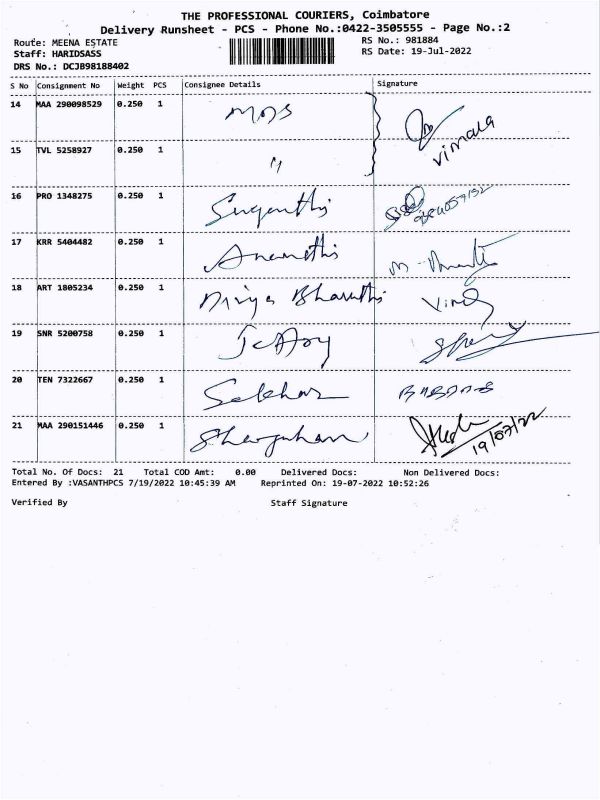 THE PROFESSIONAL COURIERS, Coimbatore
Delivery Runsheet - PCS - Phone No.:0422-3505555 - Page No.:2
Route: MEENA ESTATE RS No.: 981884
Staff: HARIDSASS RS Date: 19-Jul-2022
DRS No.: DCJB98188402
S No Consignment No Weight PCS Consignee Details Signature
14 MAA 290098529 0.250 1 Vimala
15 TVL 5258927 0.250 1 "
16 PRO 1348275 0.250 1 Suganthi
17 KRR 5404482 0.250 1 Ananthi
18 ART 1805234 0.250 1 Divya Bharathi
19 SNR 5200758 0.250 1 Jeffroy
20 TEN 7322667 0.250 1 Sekhar
21 MAA 290151446 0.250 1 19/07/22
Total No. Of Docs: 21 Total COD Amt: 0.00 Delivered Docs: Non Delivered Docs:
Entered By :VASANTHPCS 7/19/2022 10:45:39 AM Reprinted On: 19-07-2022 10:52:26
Verified By Staff Signature